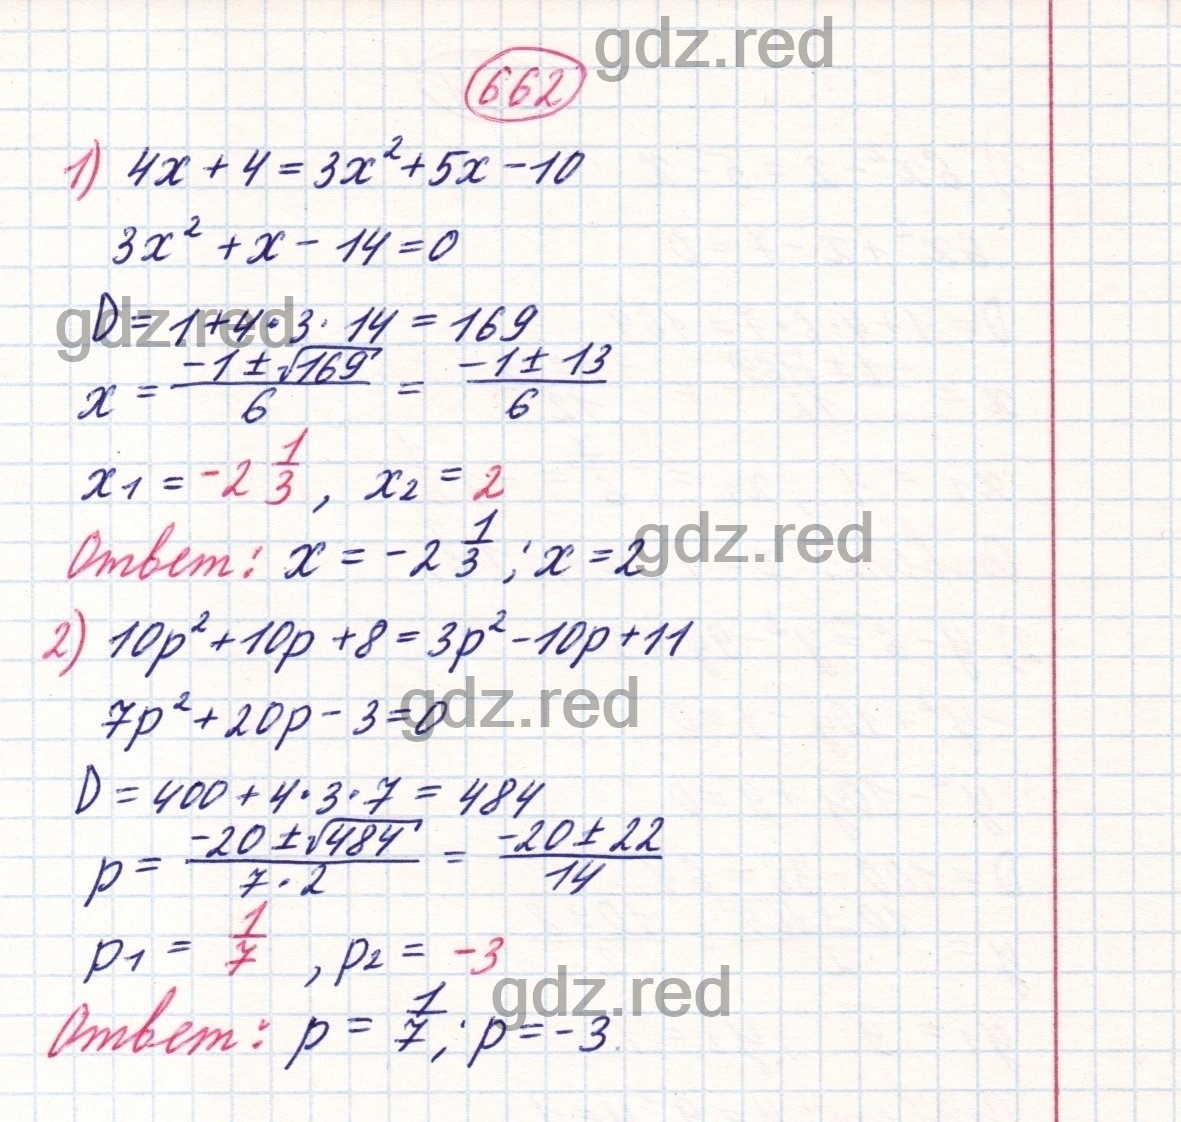 gdz.red
662
1) 4x + 4 = 3x² + 5x - 10
3x² + x - 14 = 0
gdz.red
D = 1 + 4 · 3 · 14 = 169
x = (-1 ± √169)/6 = (-1 ± 13)/6
x₁ = -2 1/3, x₂ = 2
gdz.red
Ответ: x = -2 1/3; x = 2
2) 10p² + 10p + 8 = 3p² - 10p + 11
gdz.red
7p² + 20p - 3 = 0
D = 400 + 4 · 3 · 7 = 484
p = (-20 ± √484)/(7 · 2) = (-20 ± 22)/14
p₁ = 1/7, p₂ = -3
gdz.red
Ответ: p = 1/7; p = -3